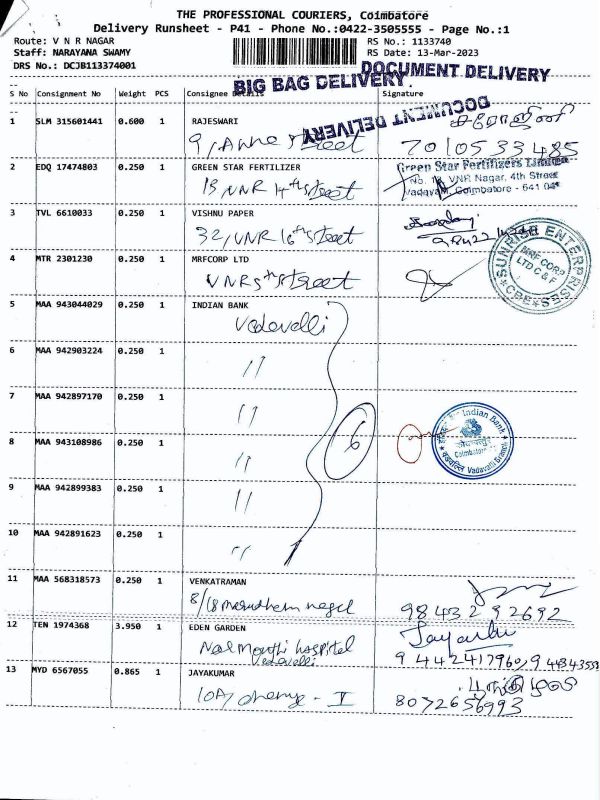 THE PROFESSIONAL COURIERS, Coimbatore
Delivery Runsheet - P41 - Phone No.:0422-3505555 - Page No.:1
Route: V N R NAGAR
RS No.: 1133740
Staff: NARAYANA SWAMY
RS Date: 13-Mar-2023
DRS No.: DCJB113374001
DOCUMENT DELIVERY
BIG BAG DELIVERY
S No Consignment No Weight PCS Consignee Details Signature
DOCUMENT DELIVERY
1 SLM 315601441 0.600 1 RAJESWARI
சரோஜினி
9, Anna street 7010533485
2 EDQ 17474803 0.250 1 GREEN STAR FERTILIZER
Green Star Fertilizers Limited
VNR 14th street
VNR Nagar, 4th Street
Vadavalli, Coimbatore - 641 04
3 TVL 6610033 0.250 1 VISHNU PAPER
32, VNR 16th street
4 MTR 2301230 0.250 1 MRFCORP LTD
VNR 5th street
SUNRISE ENTERPRISES
MRF CORP
LTD C & F
CBE
5 MAA 943044029 0.250 1 INDIAN BANK
Vadavalli
6 MAA 942903224 0.250 1
"
7 MAA 942897170 0.250 1
"
8 MAA 943108986 0.250 1
"
6
Indian Bank
Coimbatore
Vadavalli Branch
9 MAA 942899383 0.250 1
"
10 MAA 942891623 0.250 1
"
11 MAA 568318573 0.250 1 VENKATRAMAN
8/18 Marudham nagar 98432 92692
12 TEN 1974368 3.950 1 EDEN GARDEN
hospital
Vadavalli
9442417960, 9
13 MYD 6567055 0.865 1 JAYAKUMAR
10A, - I 8072656993